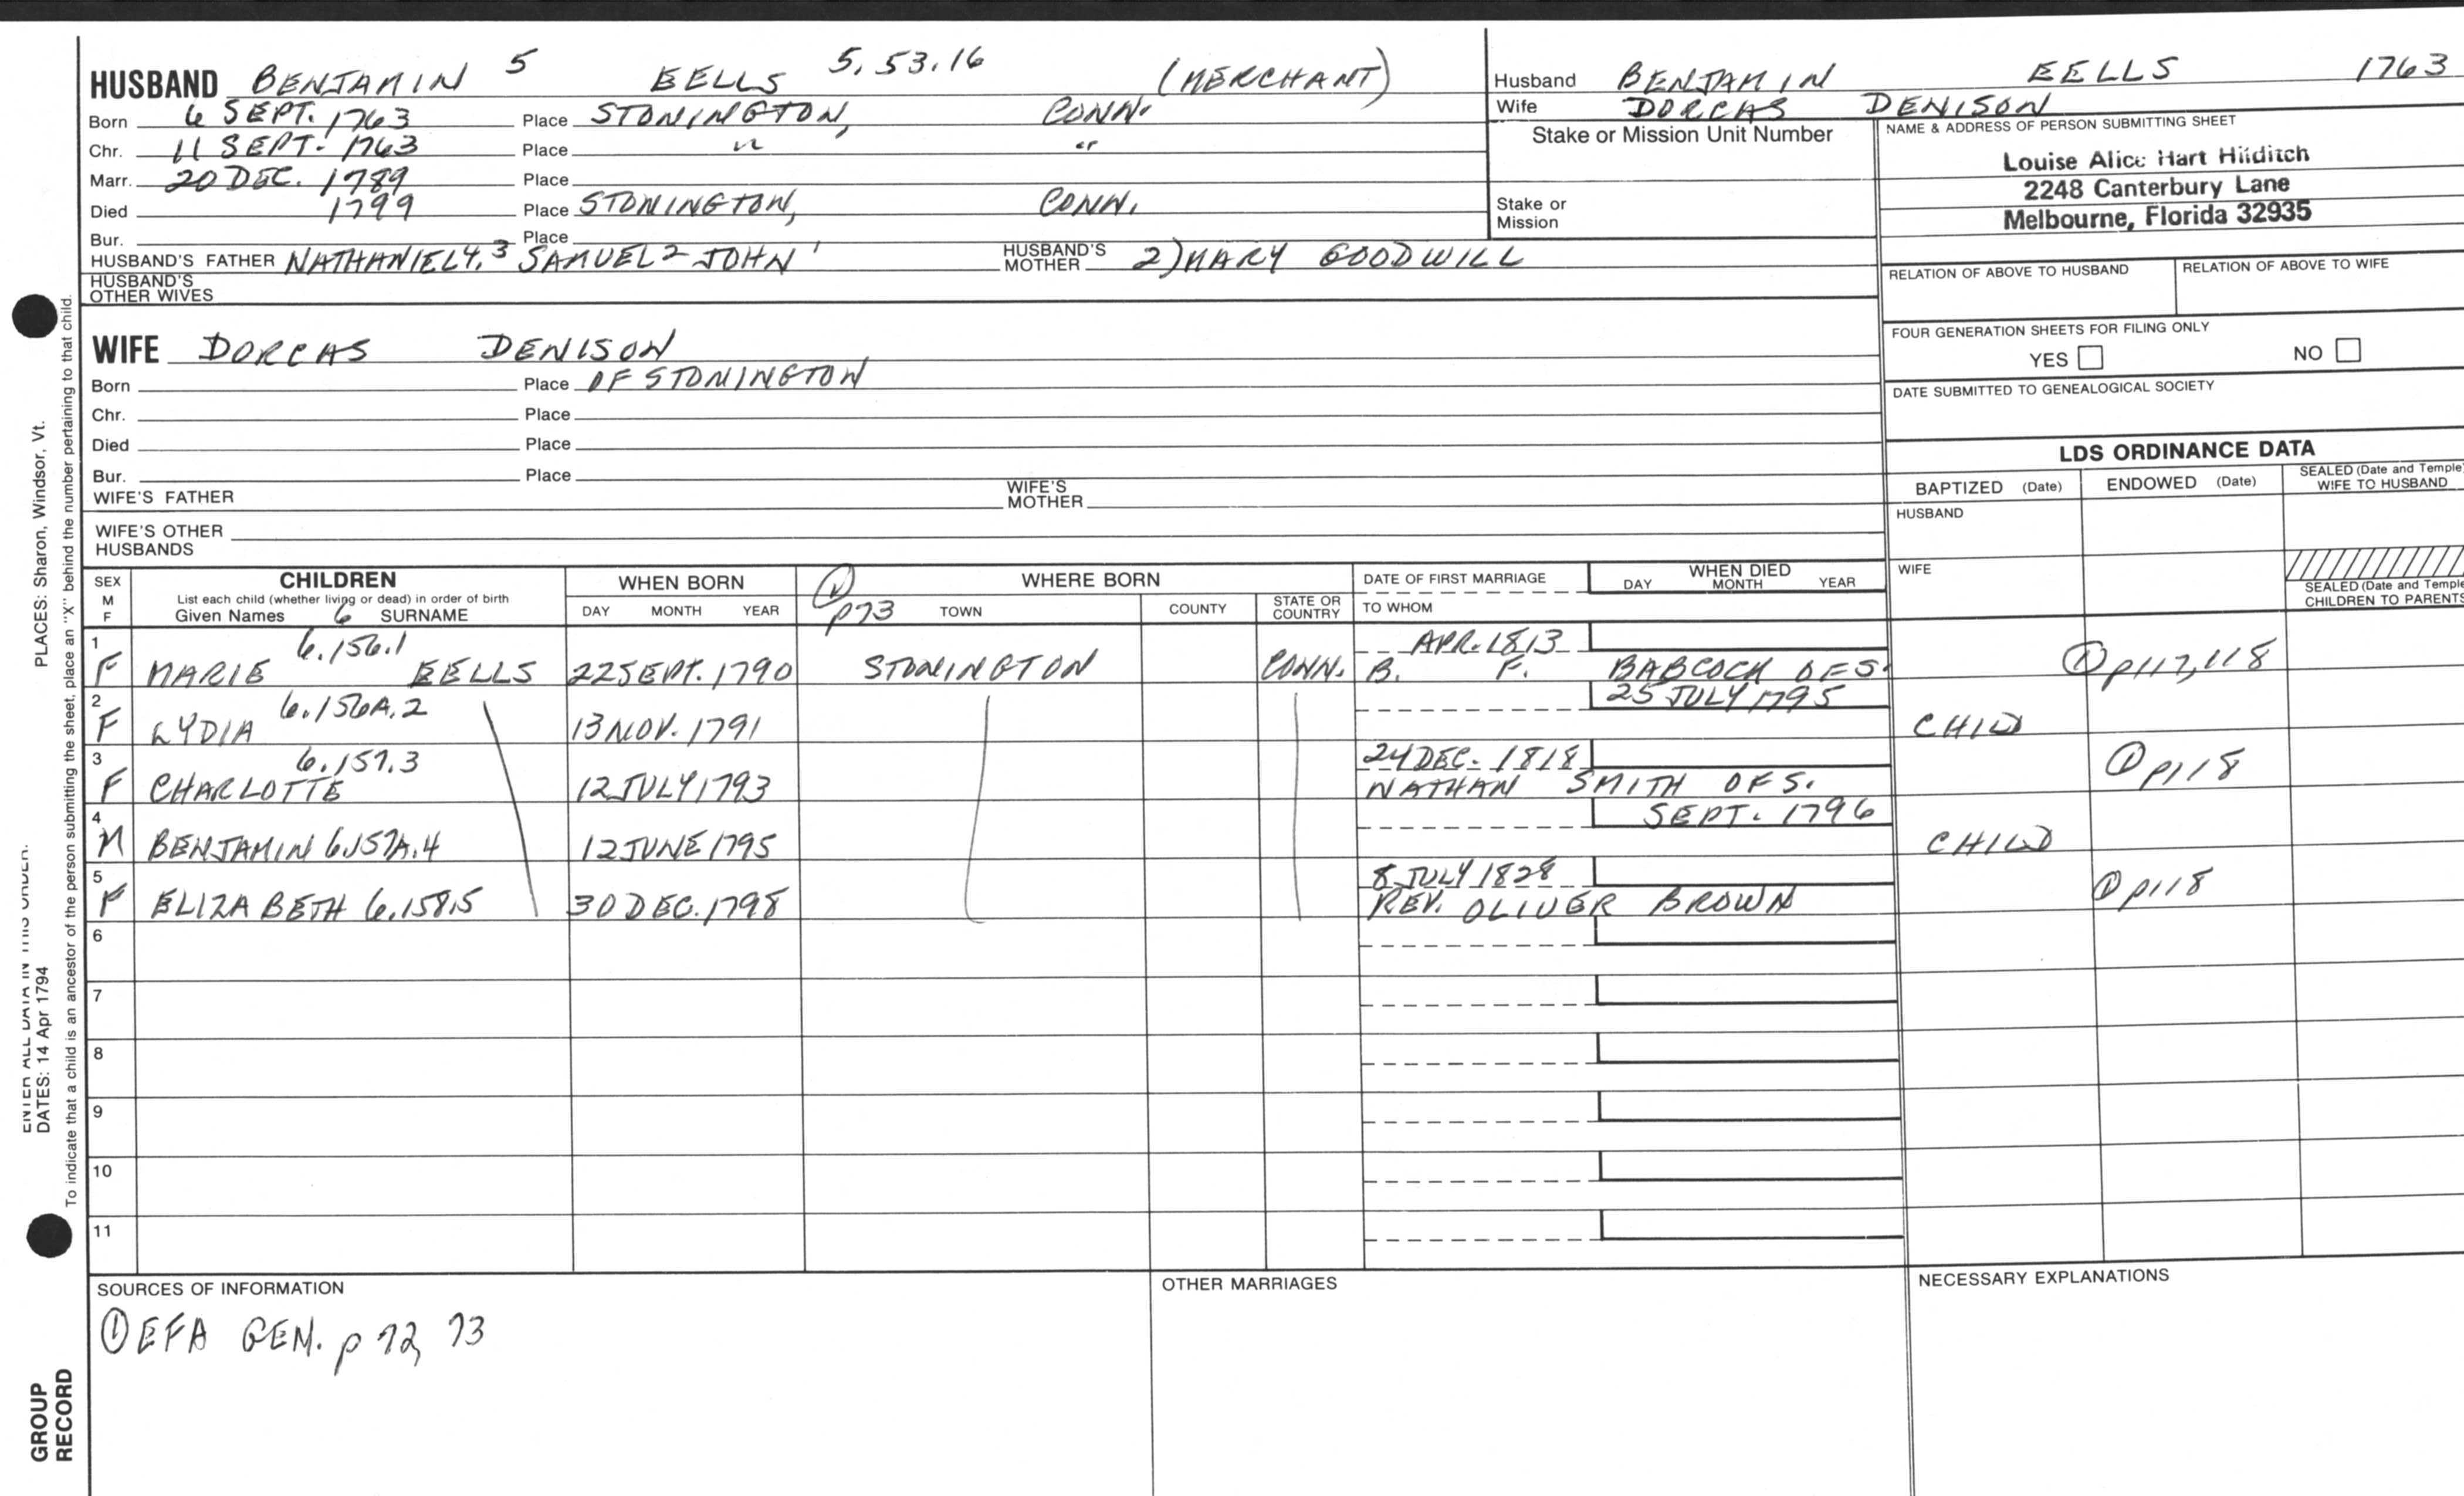 HUSBAND BENJAMIN 5 EELLS 5.53.16 (MERCHANT)
Born 6 SEPT. 1763 Place STONINGTON, CONN.
Chr. 11 SEPT. 1763 Place " "
Marr. 20 DEC. 1789 Place
Died 1799 Place STONINGTON, CONN.
Bur. Place
HUSBAND'S FATHER NATHANIEL4,3 SAMUEL2 JOHN1 HUSBAND'S MOTHER 2) MARY GOODWILL
HUSBAND'S OTHER WIVES
WIFE DORCAS DENISON
Born Place OF STONINGTON
Chr. Place
Died Place
Bur. Place
WIFE'S FATHER WIFE'S MOTHER
WIFE'S OTHER HUSBANDS
Husband BENJAMIN EELLS 1763
Wife DORCAS DENISON
Stake or Mission Unit Number
Stake or Mission
NAME & ADDRESS OF PERSON SUBMITTING SHEET
Louise Alice Hart Hilditch
2248 Canterbury Lane
Melbourne, Florida 32935
RELATION OF ABOVE TO HUSBAND RELATION OF ABOVE TO WIFE
FOUR GENERATION SHEETS FOR FILING ONLY
YES NO
DATE SUBMITTED TO GENEALOGICAL SOCIETY
LDS ORDINANCE DATA
BAPTIZED (Date) ENDOWED (Date) SEALED (Date and Temple) WIFE TO HUSBAND
HUSBAND
WIFE
SEALED (Date and Temple) CHILDREN TO PARENTS
SEX M F CHILDREN WHEN BORN ① p73 WHERE BORN DATE OF FIRST MARRIAGE WHEN DIED
List each child (whether living or dead) in order of birth
Given Names 6 SURNAME DAY MONTH YEAR TOWN COUNTY STATE OR COUNTRY TO WHOM DAY MONTH YEAR
1 6.156.1 APR. 1813
F MARIE EELLS 22 SEPT. 1790 STONINGTON CONN. B. F. BABCOCK OF S. ① p117,118
2 6.156A.2 25 JULY 1795
F LYDIA 13 NOV. 1791 CHILD
3 6.157.3 24 DEC. 1818
F CHARLOTTE 12 JULY 1793 NATHAN SMITH OF S. ① p118
4 SEPT. 1796
M BENJAMIN 6.157A.4 12 JUNE 1795 CHILD
5 8 JULY 1828
F ELIZABETH 6.158.5 30 DEC. 1798 REV. OLIVER BROWN ① p118
6
7
8
9
10
11
SOURCES OF INFORMATION OTHER MARRIAGES NECESSARY EXPLANATIONS
① EFA GEN. p 72, 73
PLACES: Sharon, Windsor, Vt.
ENTER ALL DATA IN THIS ORDER:
DATES: 14 Apr 1794
To indicate that a child is an ancestor of the person submitting the sheet, place an "X" behind the number pertaining to that child.
GROUP
RECORD